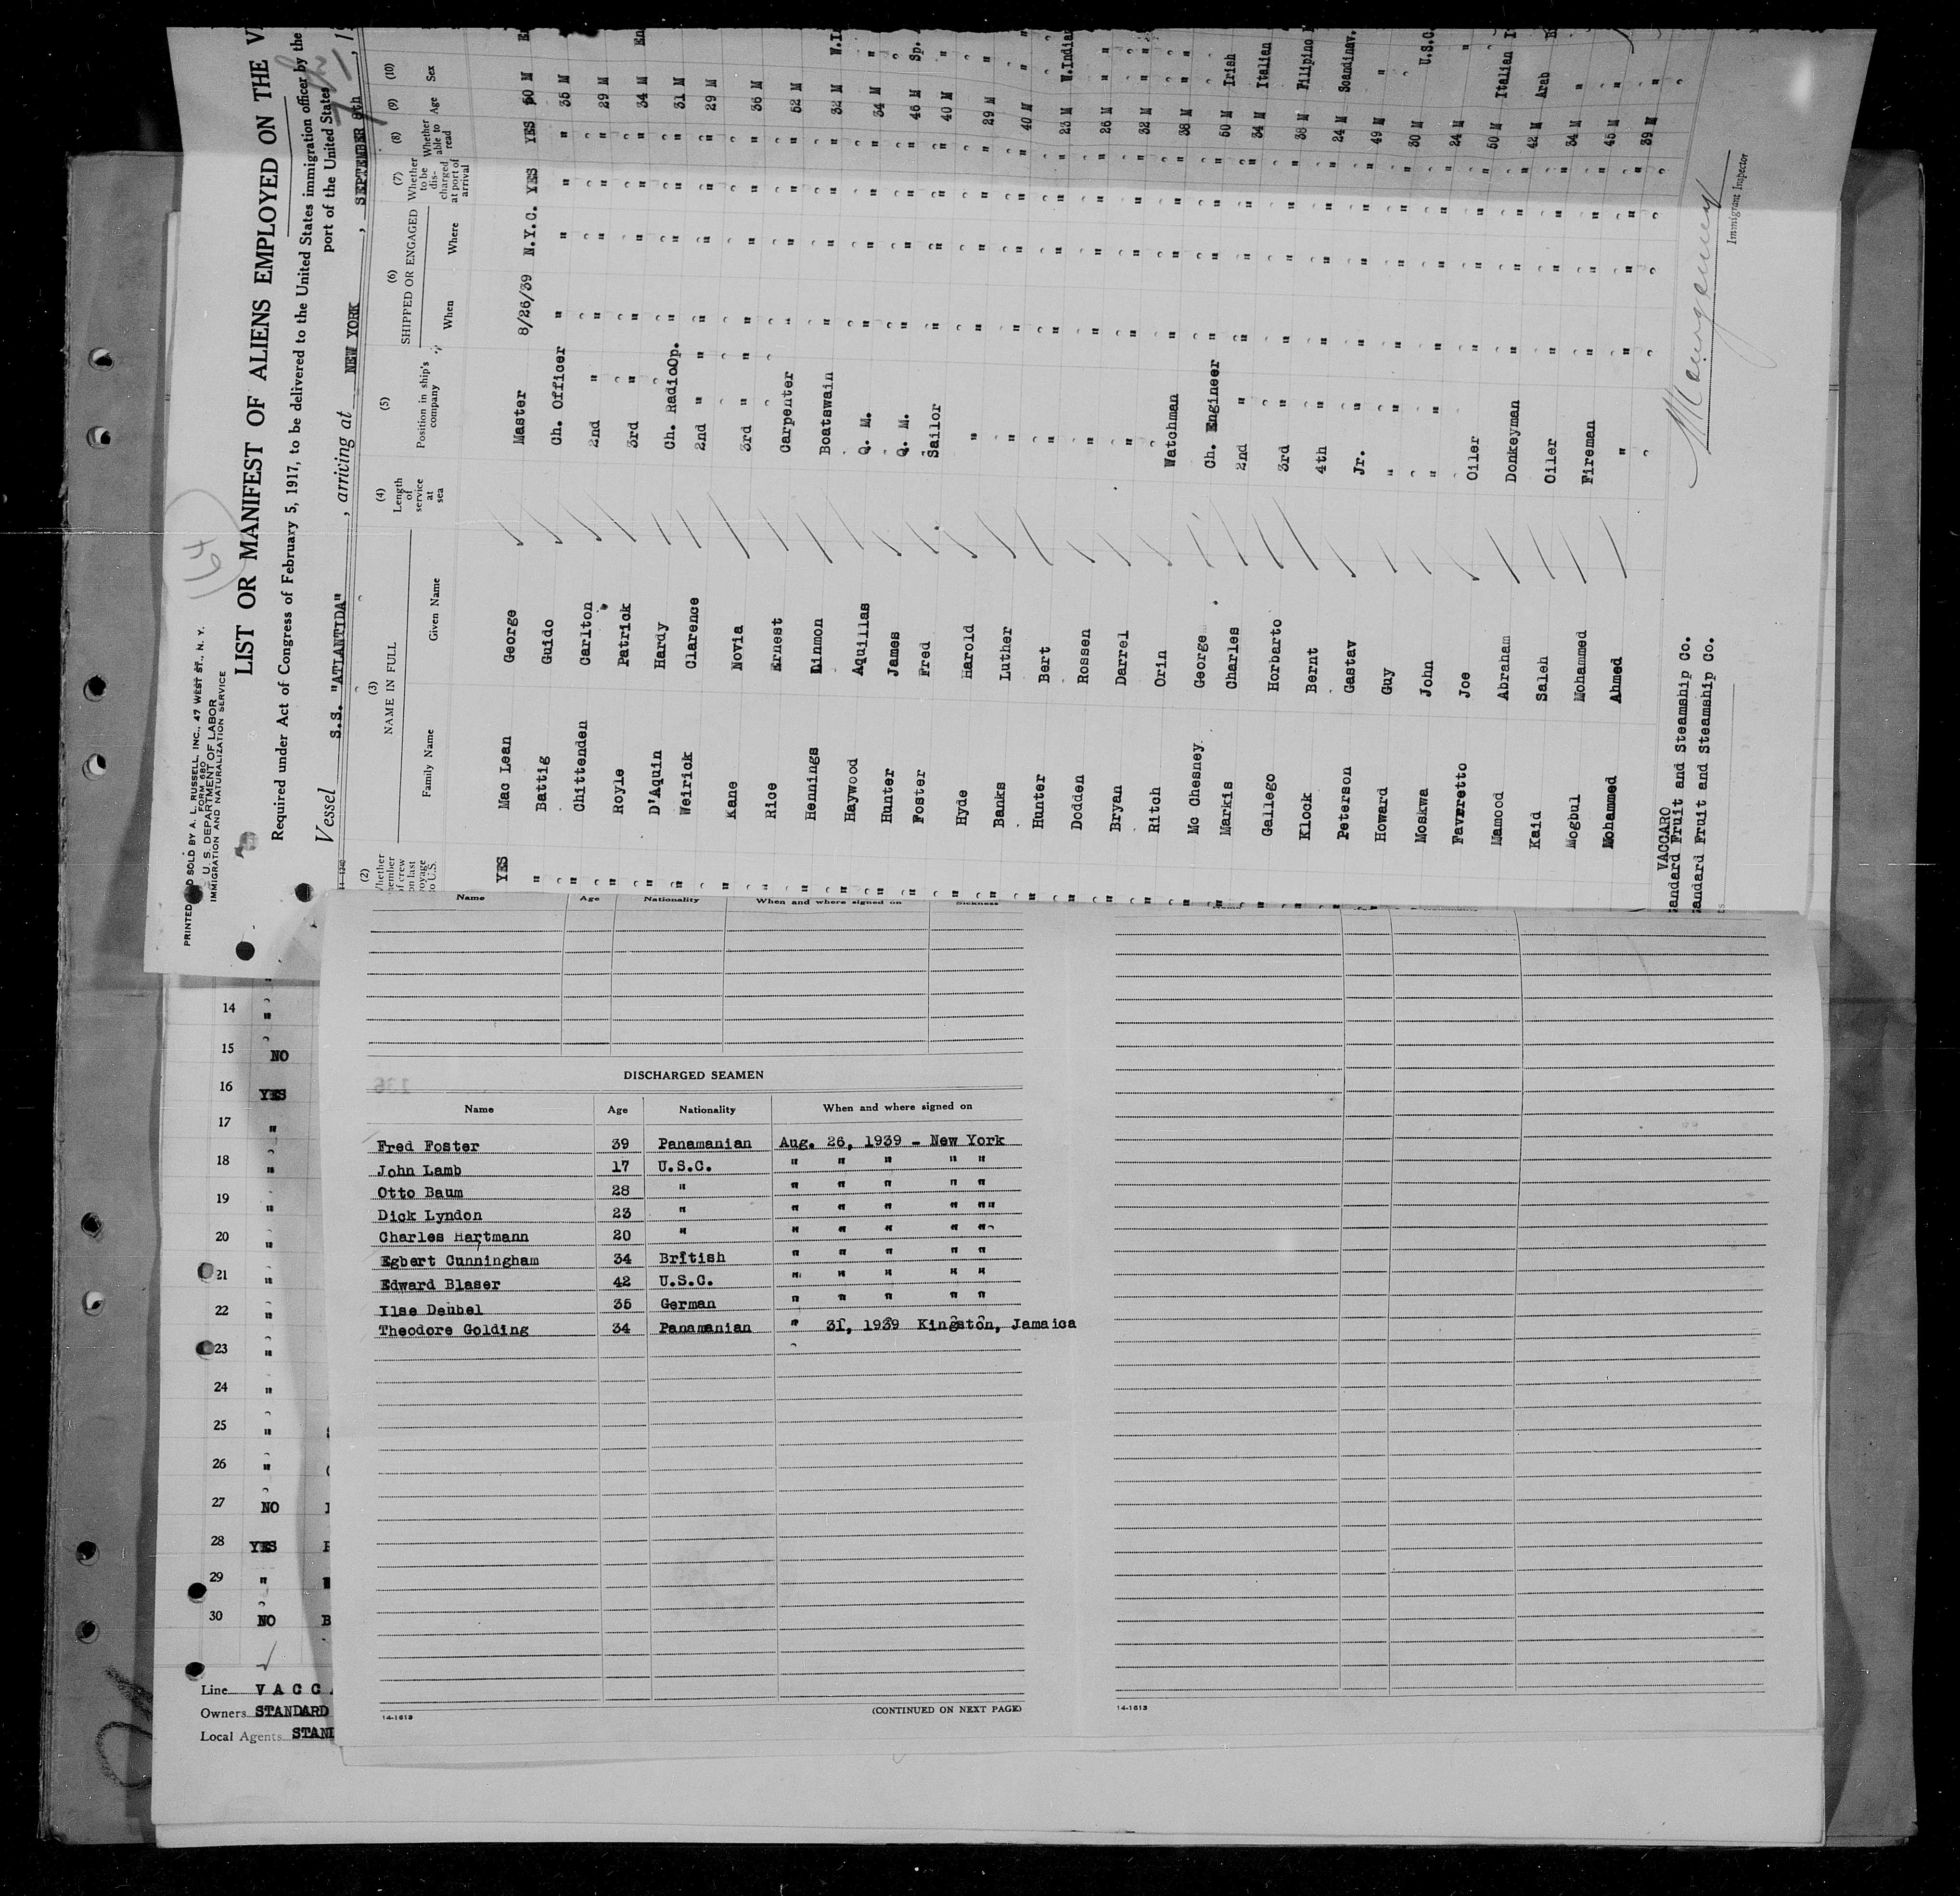 PRINTED SOLD BY A. L. RUSSELL, INC., 47 WEST ST., N. Y.
FORM 680
U. S. DEPARTMENT OF LABOR
IMMIGRATION AND NATURALIZATION SERVICE
(64)
LIST OR MANIFEST OF ALIENS EMPLOYED ON THE V
Required under Act of Congress of February 5, 1917, to be delivered to the United States immigration officer by the
port of the United States
Vessel S.S. "ATLANTIDA" , arriving at NEW YORK , SEPTEMBER 8th , 19
14-1240
(2) (3) (4) (5) (6) (7) (8) (9) (10)
Whether member of crew on last voyage to U.S. NAME IN FULL Length of service at sea Position in ship's company SHIPPED OR ENGAGED Whether to be discharged at port of arrival Whether able to read Age Sex
Family Name Given Name When Where
YES Mac Lean George Master 8/26/39 N.Y.C. YES YES 50 M
" Battig Guido Ch. Officer " " " " 35 M
" Chittenden Carlton 2nd " " " " " 29 M
" Royle Patrick 3rd " " " " " 34 M
" D'Aquin Hardy Ch. RadioOp. " " " " 31 M
" Weirick Clarence 2nd " " " " " " 29 M
" Kane Novia 3rd " " " " " " 36 M
" Rice Ernest Carpenter " " " " 52 M
" Hennings Linmon Boatswain " " " " 32 M W.I
" Haywood Aquillas Q. M. " " " " 34 M "
" Hunter James Q. M. " " " " 46 M Sp.
" Foster Fred Sailor " " " " 40 M "
" Hyde Harold " " " " " 29 M "
" Banks Luther " " " " " 40 M "
" Hunter Bert " " " " " 23 M W.Indian
" Dodden Rossen " " " " 26 M "
" Bryan Darrel " " " " " 32 M "
" Ritch Orin Watchman " " " " 38 M "
" Mc Chesney George Ch. Engineer " " " " 50 M Irish
" Markis Charles 2nd " " " " " 34 M Italian
" Gallego Horbarto 3rd " " " " " 38 M Filipino
" Klock Bernt 4th " " " " " 24 M Scandinav.
Peterson Gastav Jr. " " " " " 49 M "
Howard Guy " " " " " " 30 M U.S.C.
Moskwa John " " " " " " 24 M "
Favretto Joe Oiler " " " " 50 M Italian
Mamood Abraham Donkeyman " " " " 42 M Arab
Kaid Saleh Oiler " " " " 34 M "
Mogbul Mohammed Fireman " " " " 45 M "
Mohammed Ahmed " " " " " 39 M "
VACCARO
andard Fruit and Steamship Co.
andard Fruit and Steamship Co.
Immigrant Inspector
Name Age Nationality When and where signed on Sickness
DISCHARGED SEAMEN
Name Age Nationality When and where signed on
Fred Foster 39 Panamanian Aug. 26, 1939 - New York
John Lamb 17 U.S.C. " " " " "
Otto Baum 28 " " " " " "
Dick Lyndon 23 " " " " " ""
Charles Hartmann 20 " " " " " "
Egbert Cunningham 34 British " " " " "
Edward Blaser 42 U.S.C. " " " " "
Ilse Deubel 35 German " " " " "
Theodore Golding 34 Panamanian " 31, 1939 Kingston, Jamaica
(CONTINUED ON NEXT PAGE)
14-1613
14-1613
14 "
15 NO
16 YES
17 "
18 "
19 "
20 "
21 "
22 "
23 "
24 "
25 "
26 "
27 NO
28 YES
29 "
30 NO B
Line VACC
Owners STANDARD
Local Agents STAN